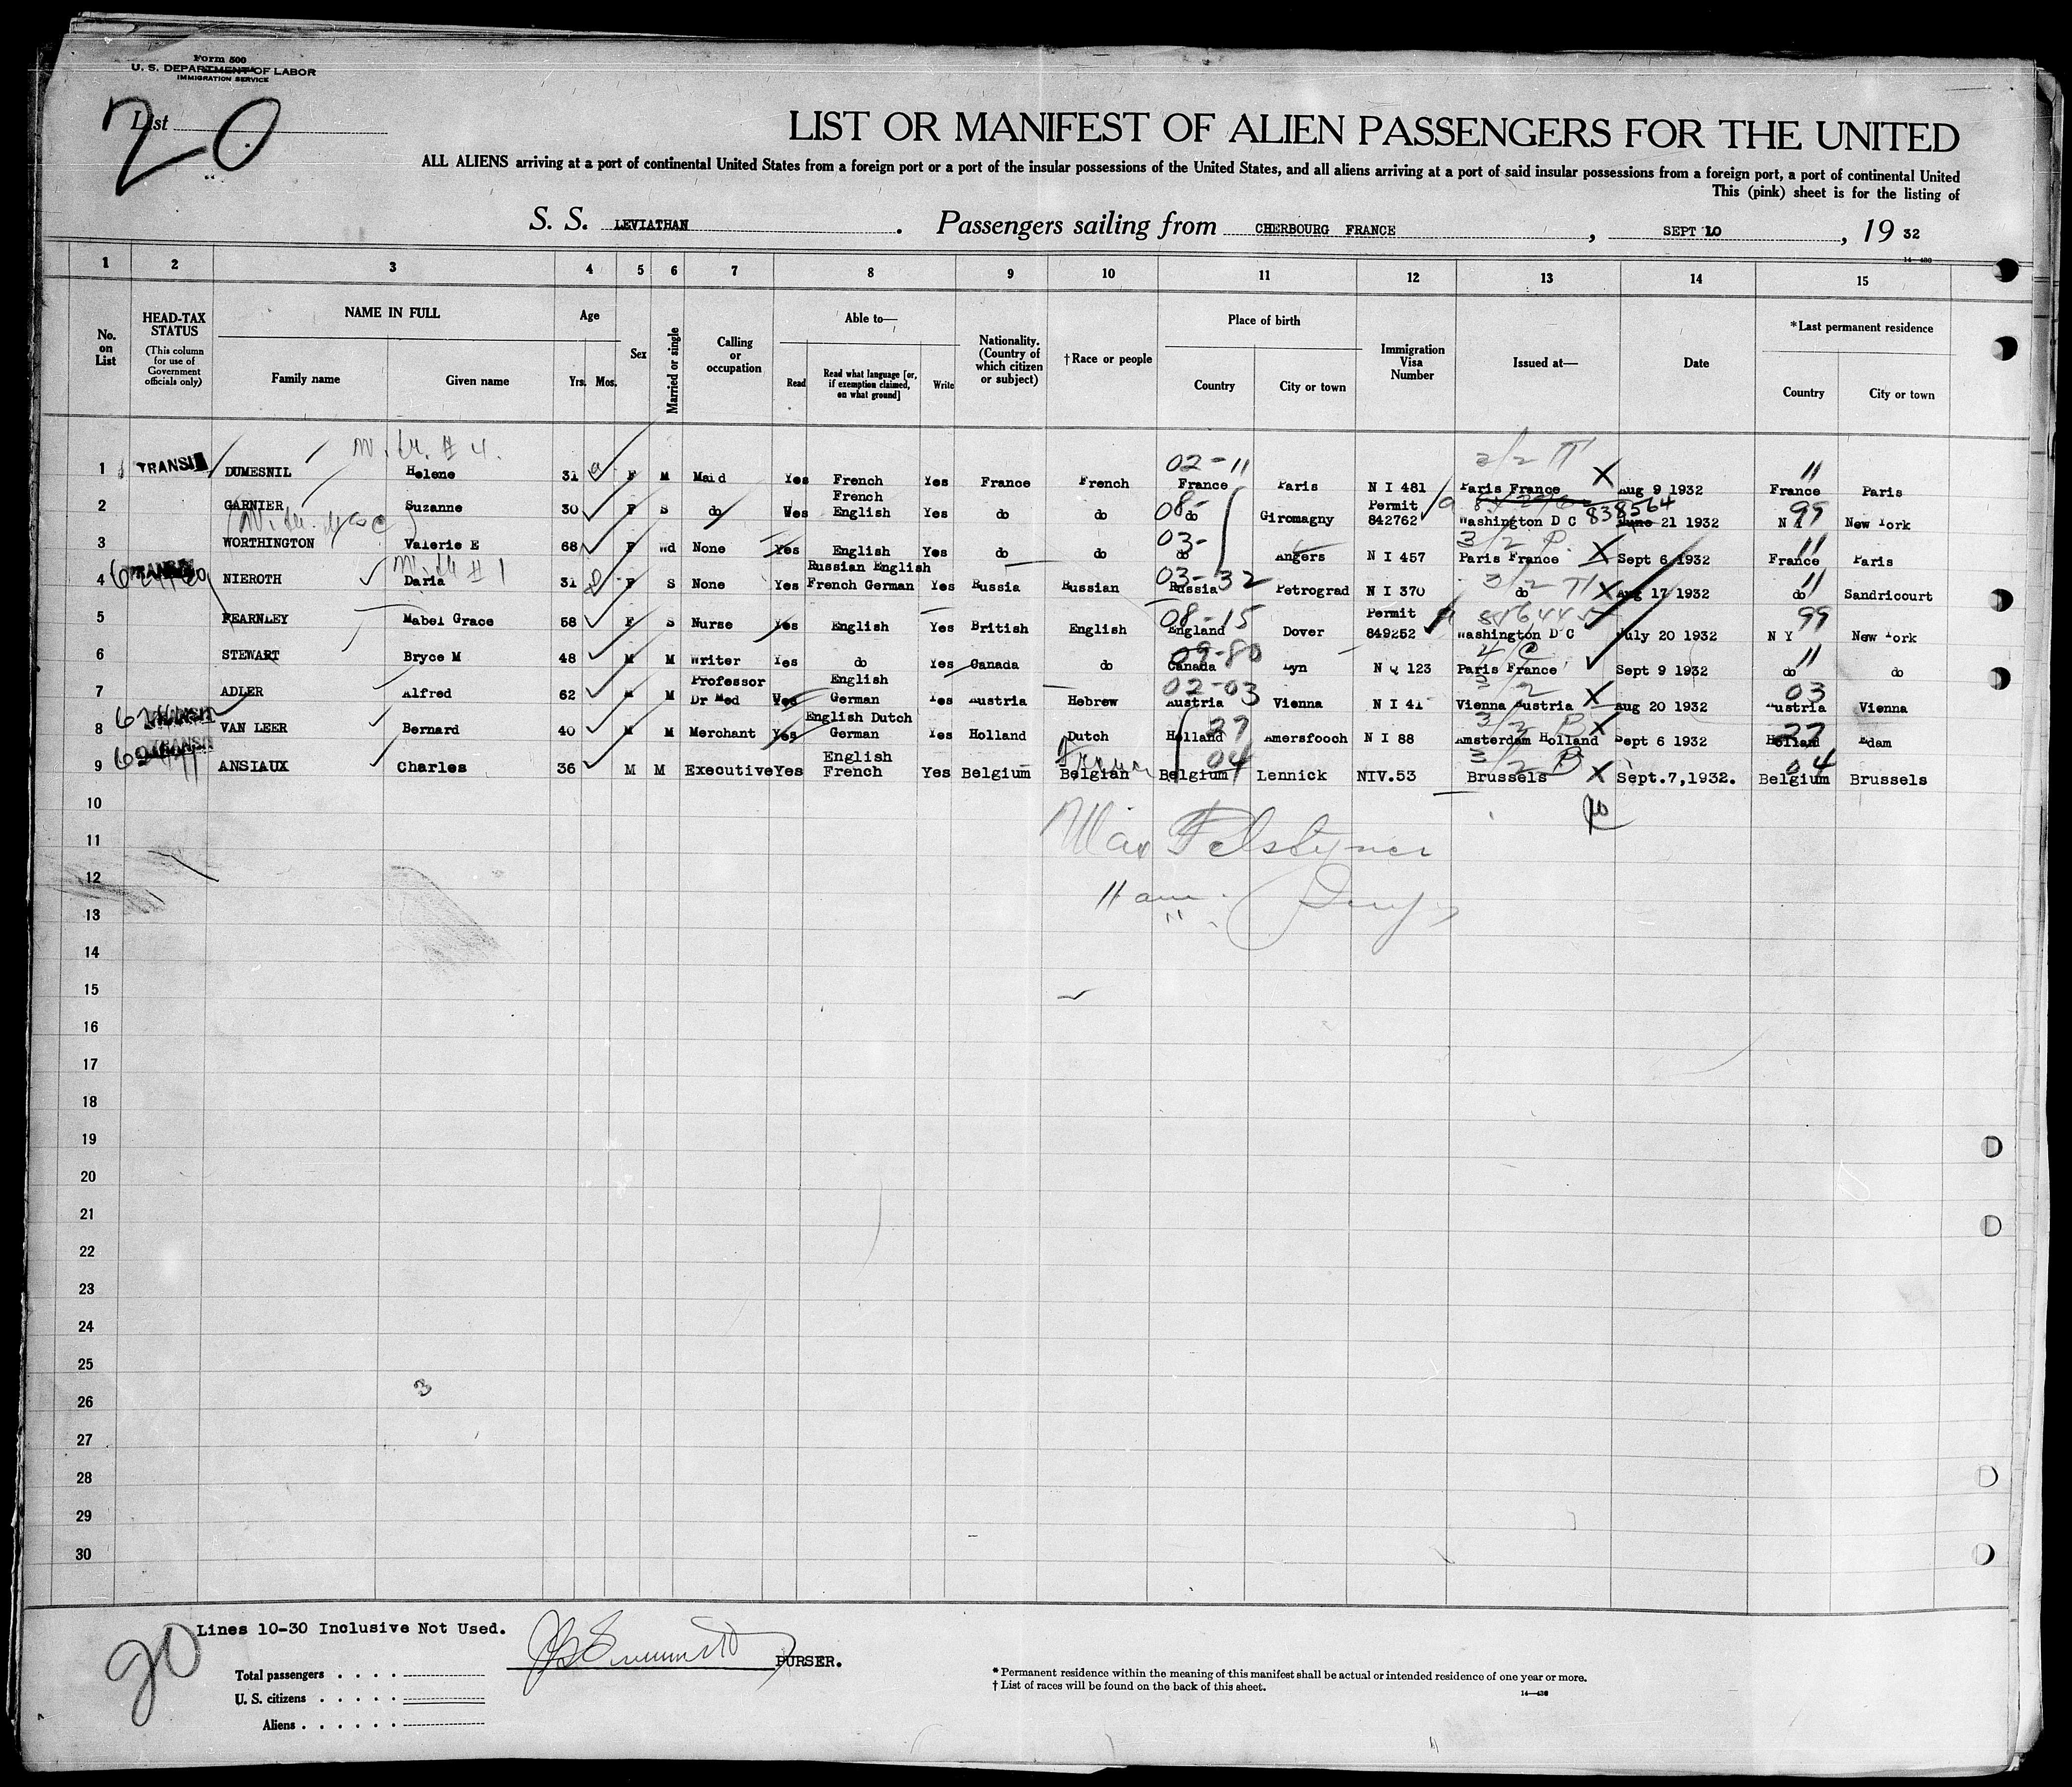 Form 500
U. S. DEPARTMENT OF LABOR
IMMIGRATION SERVICE
List 20
LIST OR MANIFEST OF ALIEN PASSENGERS FOR THE UNITED
ALL ALIENS arriving at a port of continental United States from a foreign port or a port of the insular possessions of the United States, and all aliens arriving at a port of said insular possessions from a foreign port, a port of continental United
This (pink) sheet is for the listing of
S. S. LEVIATHAN . Passengers sailing from CHERBOURG FRANCE , SEPT 10 , 19 32
14-430
1 2 3 4 5 6 7 8 9 10 11 12 13 14 15
No. on List
HEAD-TAX STATUS
(This column for use of Government officials only)
NAME IN FULL
Family name Given name
Age
Yrs. Mos.
Sex
Married or single
Calling or occupation
Able to—
Read
Read what language [or, if exemption claimed, on what ground]
Write
Nationality. (Country of which citizen or subject)
†Race or people
Place of birth
Country City or town
Immigration Visa Number
Issued at—
Date
*Last permanent residence
Country City or town
# 4.
3/2 TI
02-11
1 TRANSIT DUMESNIL Helene 31 F M Maid Yes French Yes France French France Paris N I 481 Paris France X Aug 9 1932 11 France Paris
2 GARNIER Suzanne 30 F S do Yes French English Yes do do 08- do Giromagny Permit 842762 Washington D C 838564 June 21 1932 99 N Y New York
3 WORTHINGTON Valerie E 68 F Wd None Yes English Yes do do 03- do Angers N I 457 3/2 P. Paris France X Sept 6 1932 11 France Paris
# 1
4 TRANSIT NIEROTH Daria 31 F S None Yes Russian English French German Yes Russia Russian 03-32 Russia Petrograd N I 370 3/2 TI do X Aug 17 1932 11 do Sandricourt
5 FEARNLEY Mabel Grace 58 F S Nurse Yes English Yes British English 08-15 England Dover Permit 849252 Washington D C July 20 1932 99 N Y New York
6 STEWART Bryce M 48 M M Writer Yes do Yes Canada do 09-80 Canada Lyn N Q 123 Paris France Sept 9 1932 11 do do
7 ADLER Alfred 62 M M Professor Dr Med Yes English German Yes Austria Hebrew 02-03 Austria Vienna N I 41 3/2 Vienna Austria X Aug 20 1932 03 Austria Vienna
8 TRANSIT VAN LEER Bernard 40 M M Merchant Yes English Dutch German Yes Holland Dutch 27 Holland Amersfooch N I 88 3/2 B Amsterdam Holland X Sept 6 1932 27 Holland Adam
9 TRANSIT ANSIAUX Charles 36 M M Executive Yes English French Yes Belgium Belgian 04 Belgium Lennick NIV.53 3/2 B Brussels X Sept.7,1932. 04 Belgium Brussels
10
11
12
13
14
15
16
17
18
19
20
21
22
23
24
25
26
27
28
29
30
3
20
Lines 10-30 Inclusive Not Used.
PURSER.
Total passengers . . . .
U. S. citizens . . . . .
Aliens . . . . . .
* Permanent residence within the meaning of this manifest shall be actual or intended residence of one year or more.
† List of races will be found on the back of this sheet.
14-430